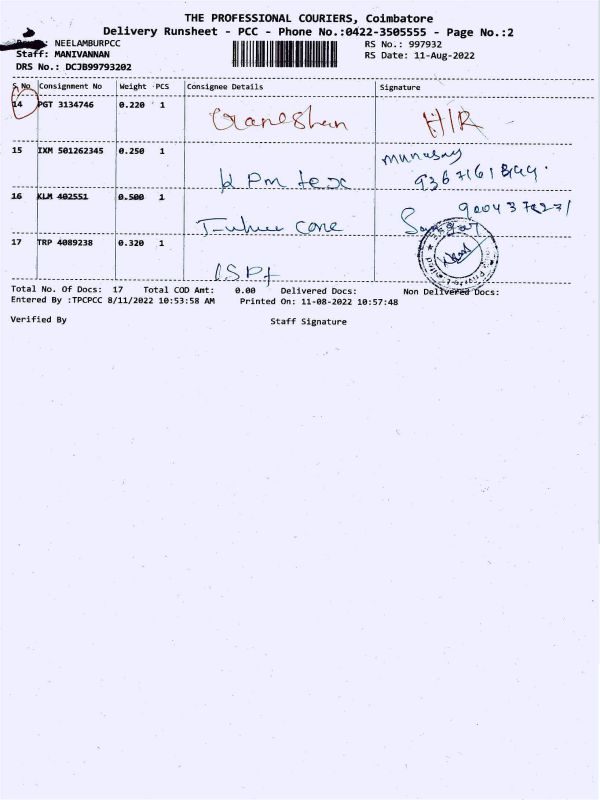 THE PROFESSIONAL COURIERS, Coimbatore
Delivery Runsheet - PCC - Phone No.:0422-3505555 - Page No.:2
NEELAMBURPCC
RS No.: 997932
Staff: MANIVANNAN
RS Date: 11-Aug-2022
DRS No.: DCJB99793202
S No Consignment No Weight PCS Consignee Details Signature
14 PGT 3134746 0.220 1
Ganeshan
15 IXM 501262345 0.250 1
K Pm tex
16 KLM 402551 0.500 1
cone
17 TRP 4089238 0.320 1
Total No. Of Docs: 17 Total COD Amt: 0.00 Delivered Docs: Non Delivered Docs:
Entered By :TPCPCC 8/11/2022 10:53:58 AM Printed On: 11-08-2022 10:57:48
Verified By Staff Signature